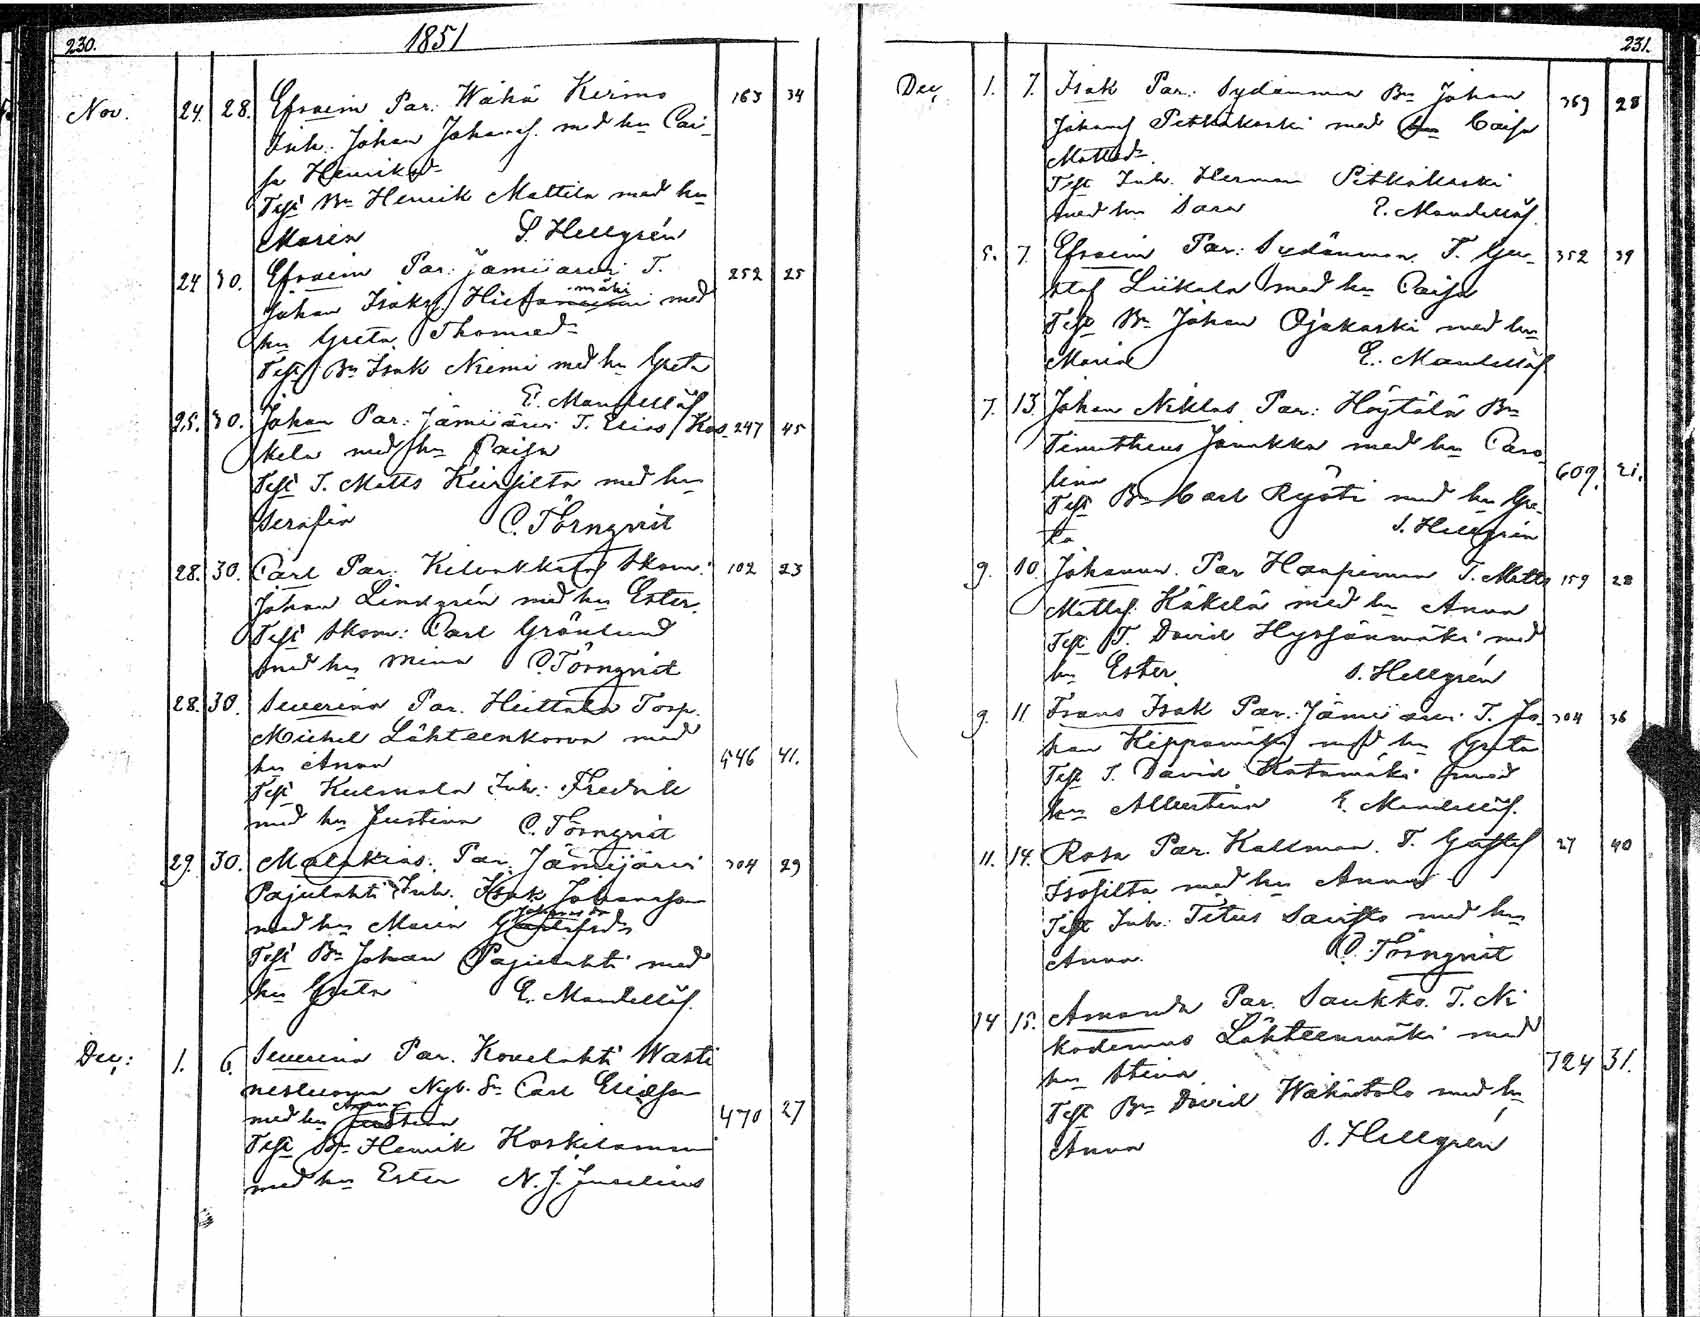 230.
1851
Nov. 24. 28. Efraim Par: Wähä Kirmo 163 34
Inh. Johan Johanss. med hu Cai-
sa Henriksd
Test Bn Henrik Mattila med hu
Maria S. Hellgrén
24 30. Efraim Par: Jämijärvi T. 252 25
mäki
Johan Isaks Hieta med
hu Greta Thomasd
Test Bn Isak Niemi med hu Greta
E. Mandellöf
25. 30. Johan Par: Jämijärvi T. Elias Kos- 247 45
kela med hu Caisa
Test T. Matts Kivisilta med hu
Serafia C. Törnqvist
28. 30. Carl Par: Kilvakkala Skom: 102 23
Johan Lindgrén med hu Ester.
Test Skom: Carl Grönlund
med hu Mina C. Törnqvist
28. 30. Severina Par. Heittola Torp.
Michel Lähteenkorva med
hu Anna 546 41.
Test Kulmala Inh: Fredrik
med hu Justina C. Törnqvist
29. 30. Malakias. Par. Jämijärvi 304 29
Pajulahti Inh. Isak Johansson
Johansdr
med hu Maria Gustafsd
Test Bn Johan Pajulahti med
hu Greta E. Mandellöf.
Dec: 1. 6. Severina Par. Kovelahti Wasti
Nyb. Sn Carl Ericsson
Anna
med hu Justina 470 27
Test Bn Henrik Koskilammi
med hu Ester N. J. Juselius
231.
Dec, 1. 7. Isak Par: Sydänmaa Bn Johan 369 28
Johanss Pitkäkoski med hu Caisa
Mattsd
Test Inh. Herman Pitkäkoski
med hu Sara E. Mandellöf
5. 7. Efraim Par: Sydänmaa. T. Gus- 352 39
staf Liikala med hu Caisa
Test Bn Johan Ojakoski med hu
Maria E. Mandellöf
7. 13. Johan Niklas Par: Höytölä Bn
Timotheus Junkka med hu Caro-
lina 609. 21.
Test Bn Carl Ryöti med hu Gre-
ta S. Hellgrén
9. 10. Johanna. Par Haapimaa T. Matts 159 28
Mattss. Käkelä med hu Anna
Test T. David Hyssänmäki med
hu Ester. S. Hellgrén
9. 11 Frans Isak Par: Jämijärvi T. Jo- 304 36
han Kippamäki med hu Greta
Test T. David Katamäki med
hu Albertina E. Mandellöf.
11. 14. Rosa Par. Kallmaa. T. Gustaf 27 40
Isosilta med hu Anna
Test Inh: Titus Saviska med hu
Anna. C. Törnqvist
14 15. Amanda Par. Saukko T. Ni
kodemus Lähteenmäki med
hu Stina 724 31.
Test Bn David Wähätalo med hu
Anna S. Hellgrén